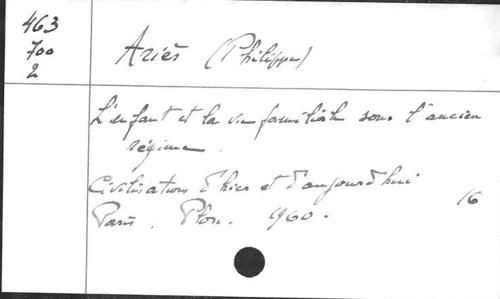 463
700
2
Ariès (Philippe)
L'enfant et la vie familiale sous l'ancien
régime.
Civilisations d'hier et d'aujourd'hui
Paris. Plon. 1960.
16